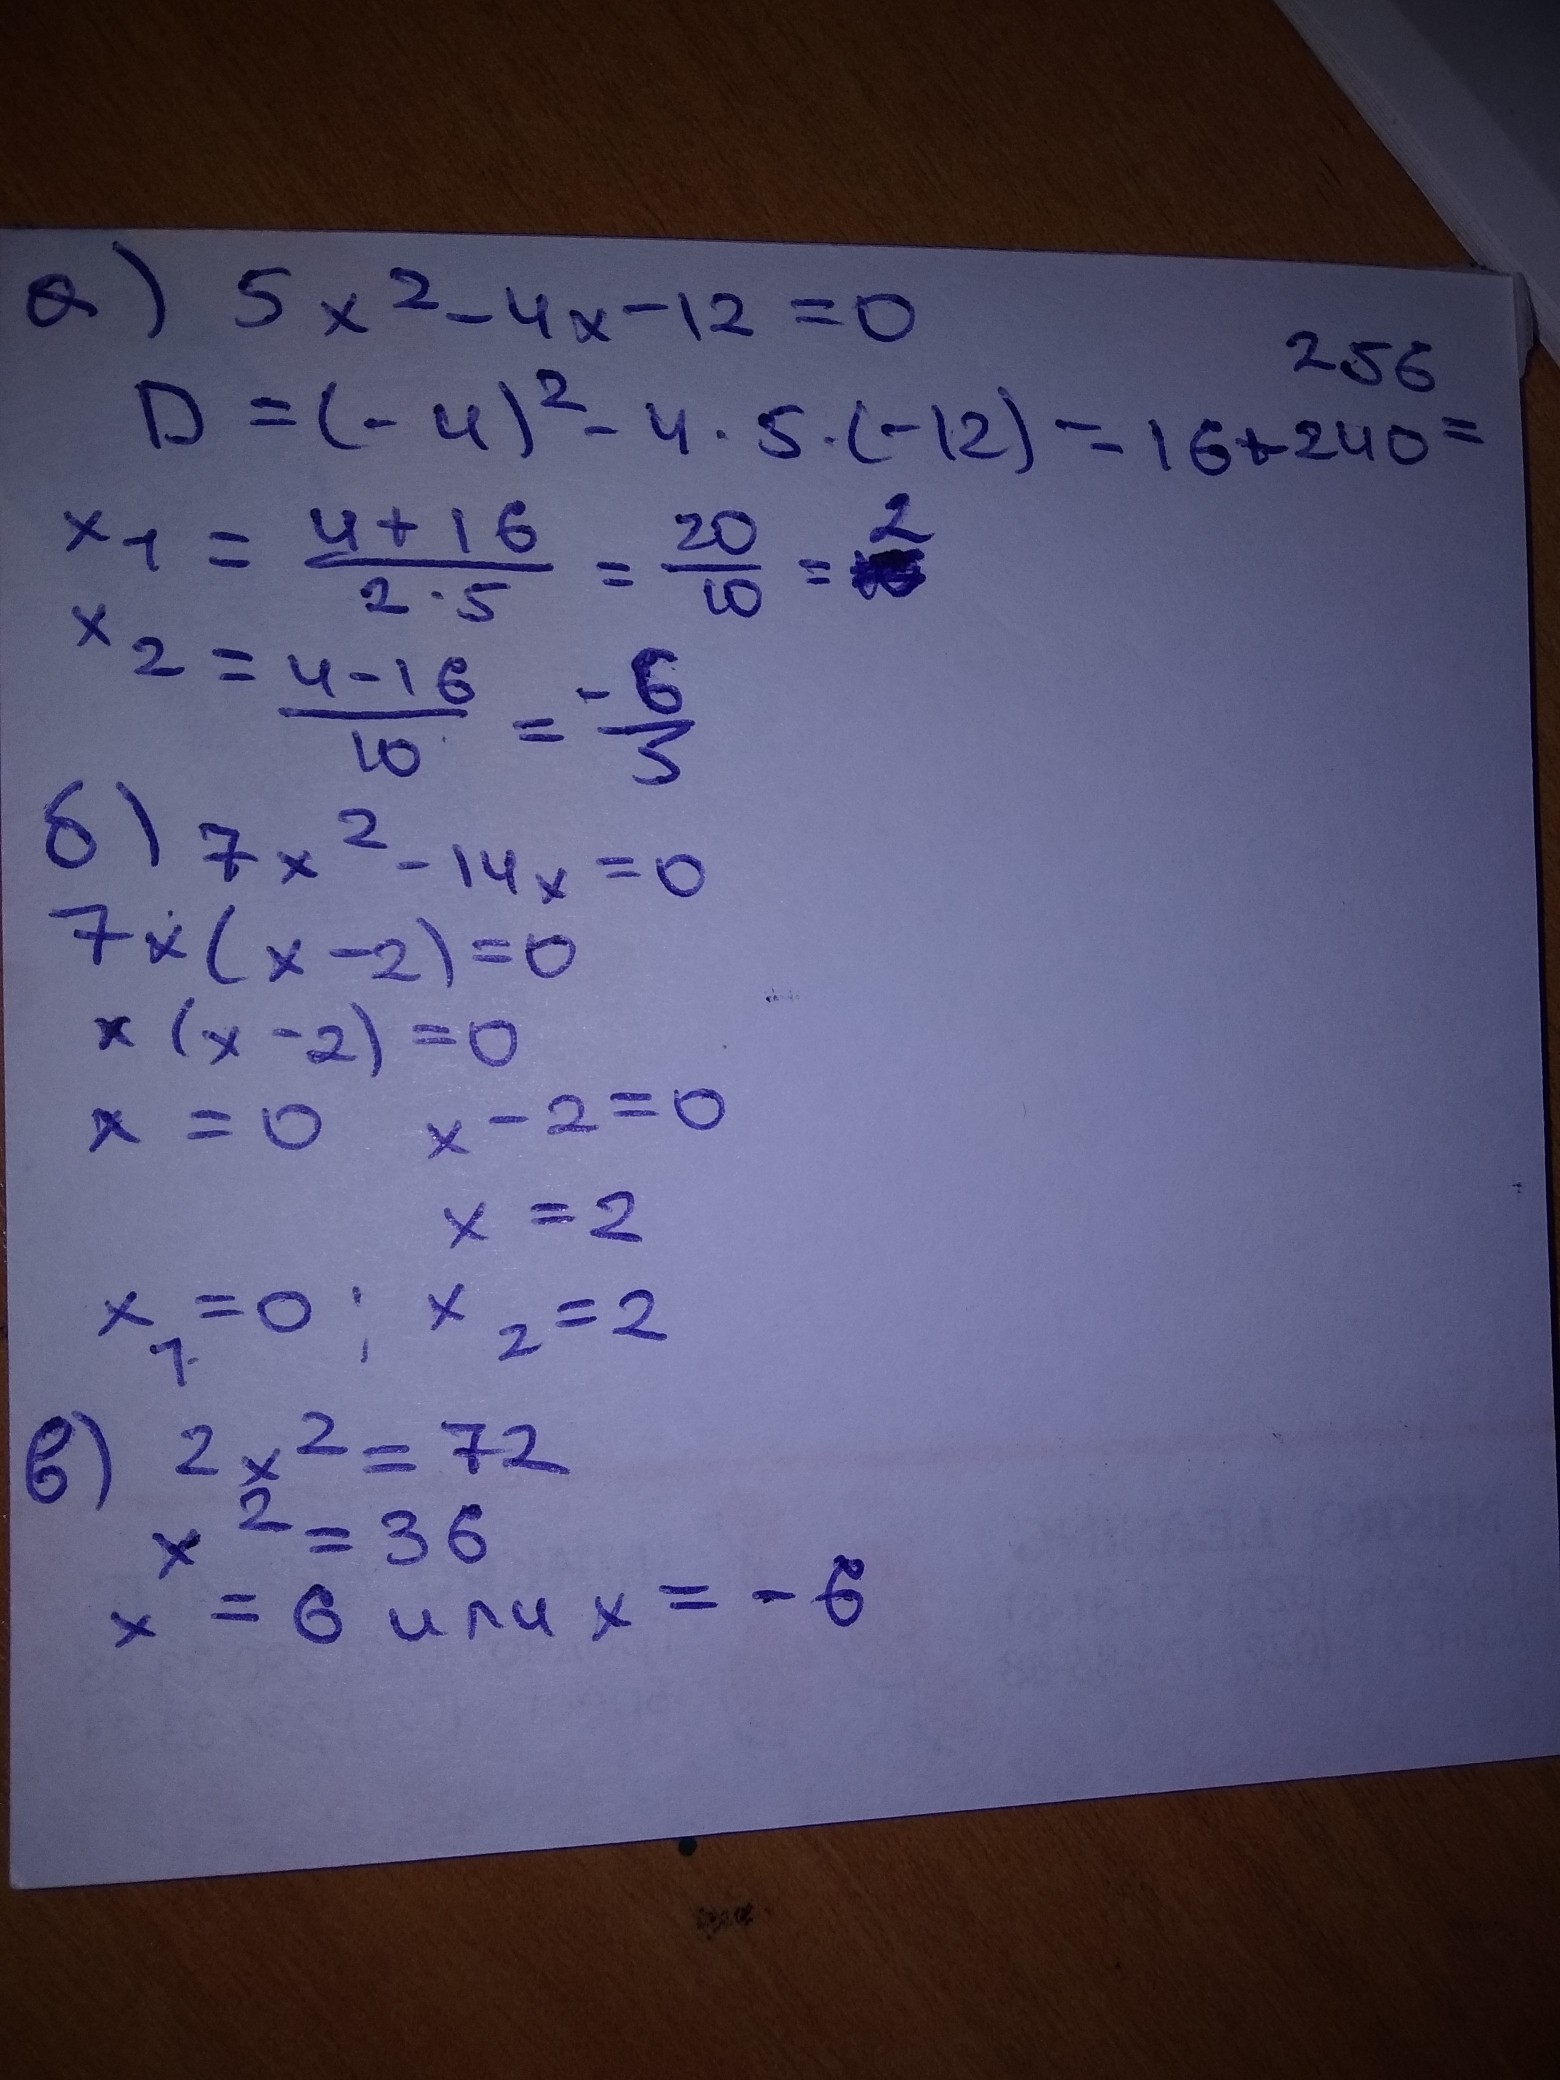 а) 5x² - 4x - 12 = 0
D = (-4)² - 4 · 5 · (-12) = 16 + 240 = 256
x₁ = (4 + 16)/(2 · 5) = 20/10 = 2
x₂ = (4 - 16)/10 = -6/5
б) 7x² - 14x = 0
7x(x - 2) = 0
x(x - 2) = 0
x = 0 x - 2 = 0
x = 2
x₁ = 0 ; x₂ = 2
в) 2x² = 72
x² = 36
x = 6 или x = -6